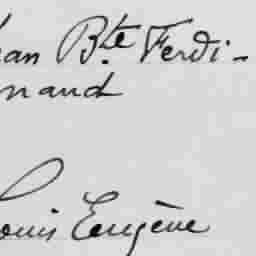 Jean Bte Ferdi-
nand
Louis Eugène